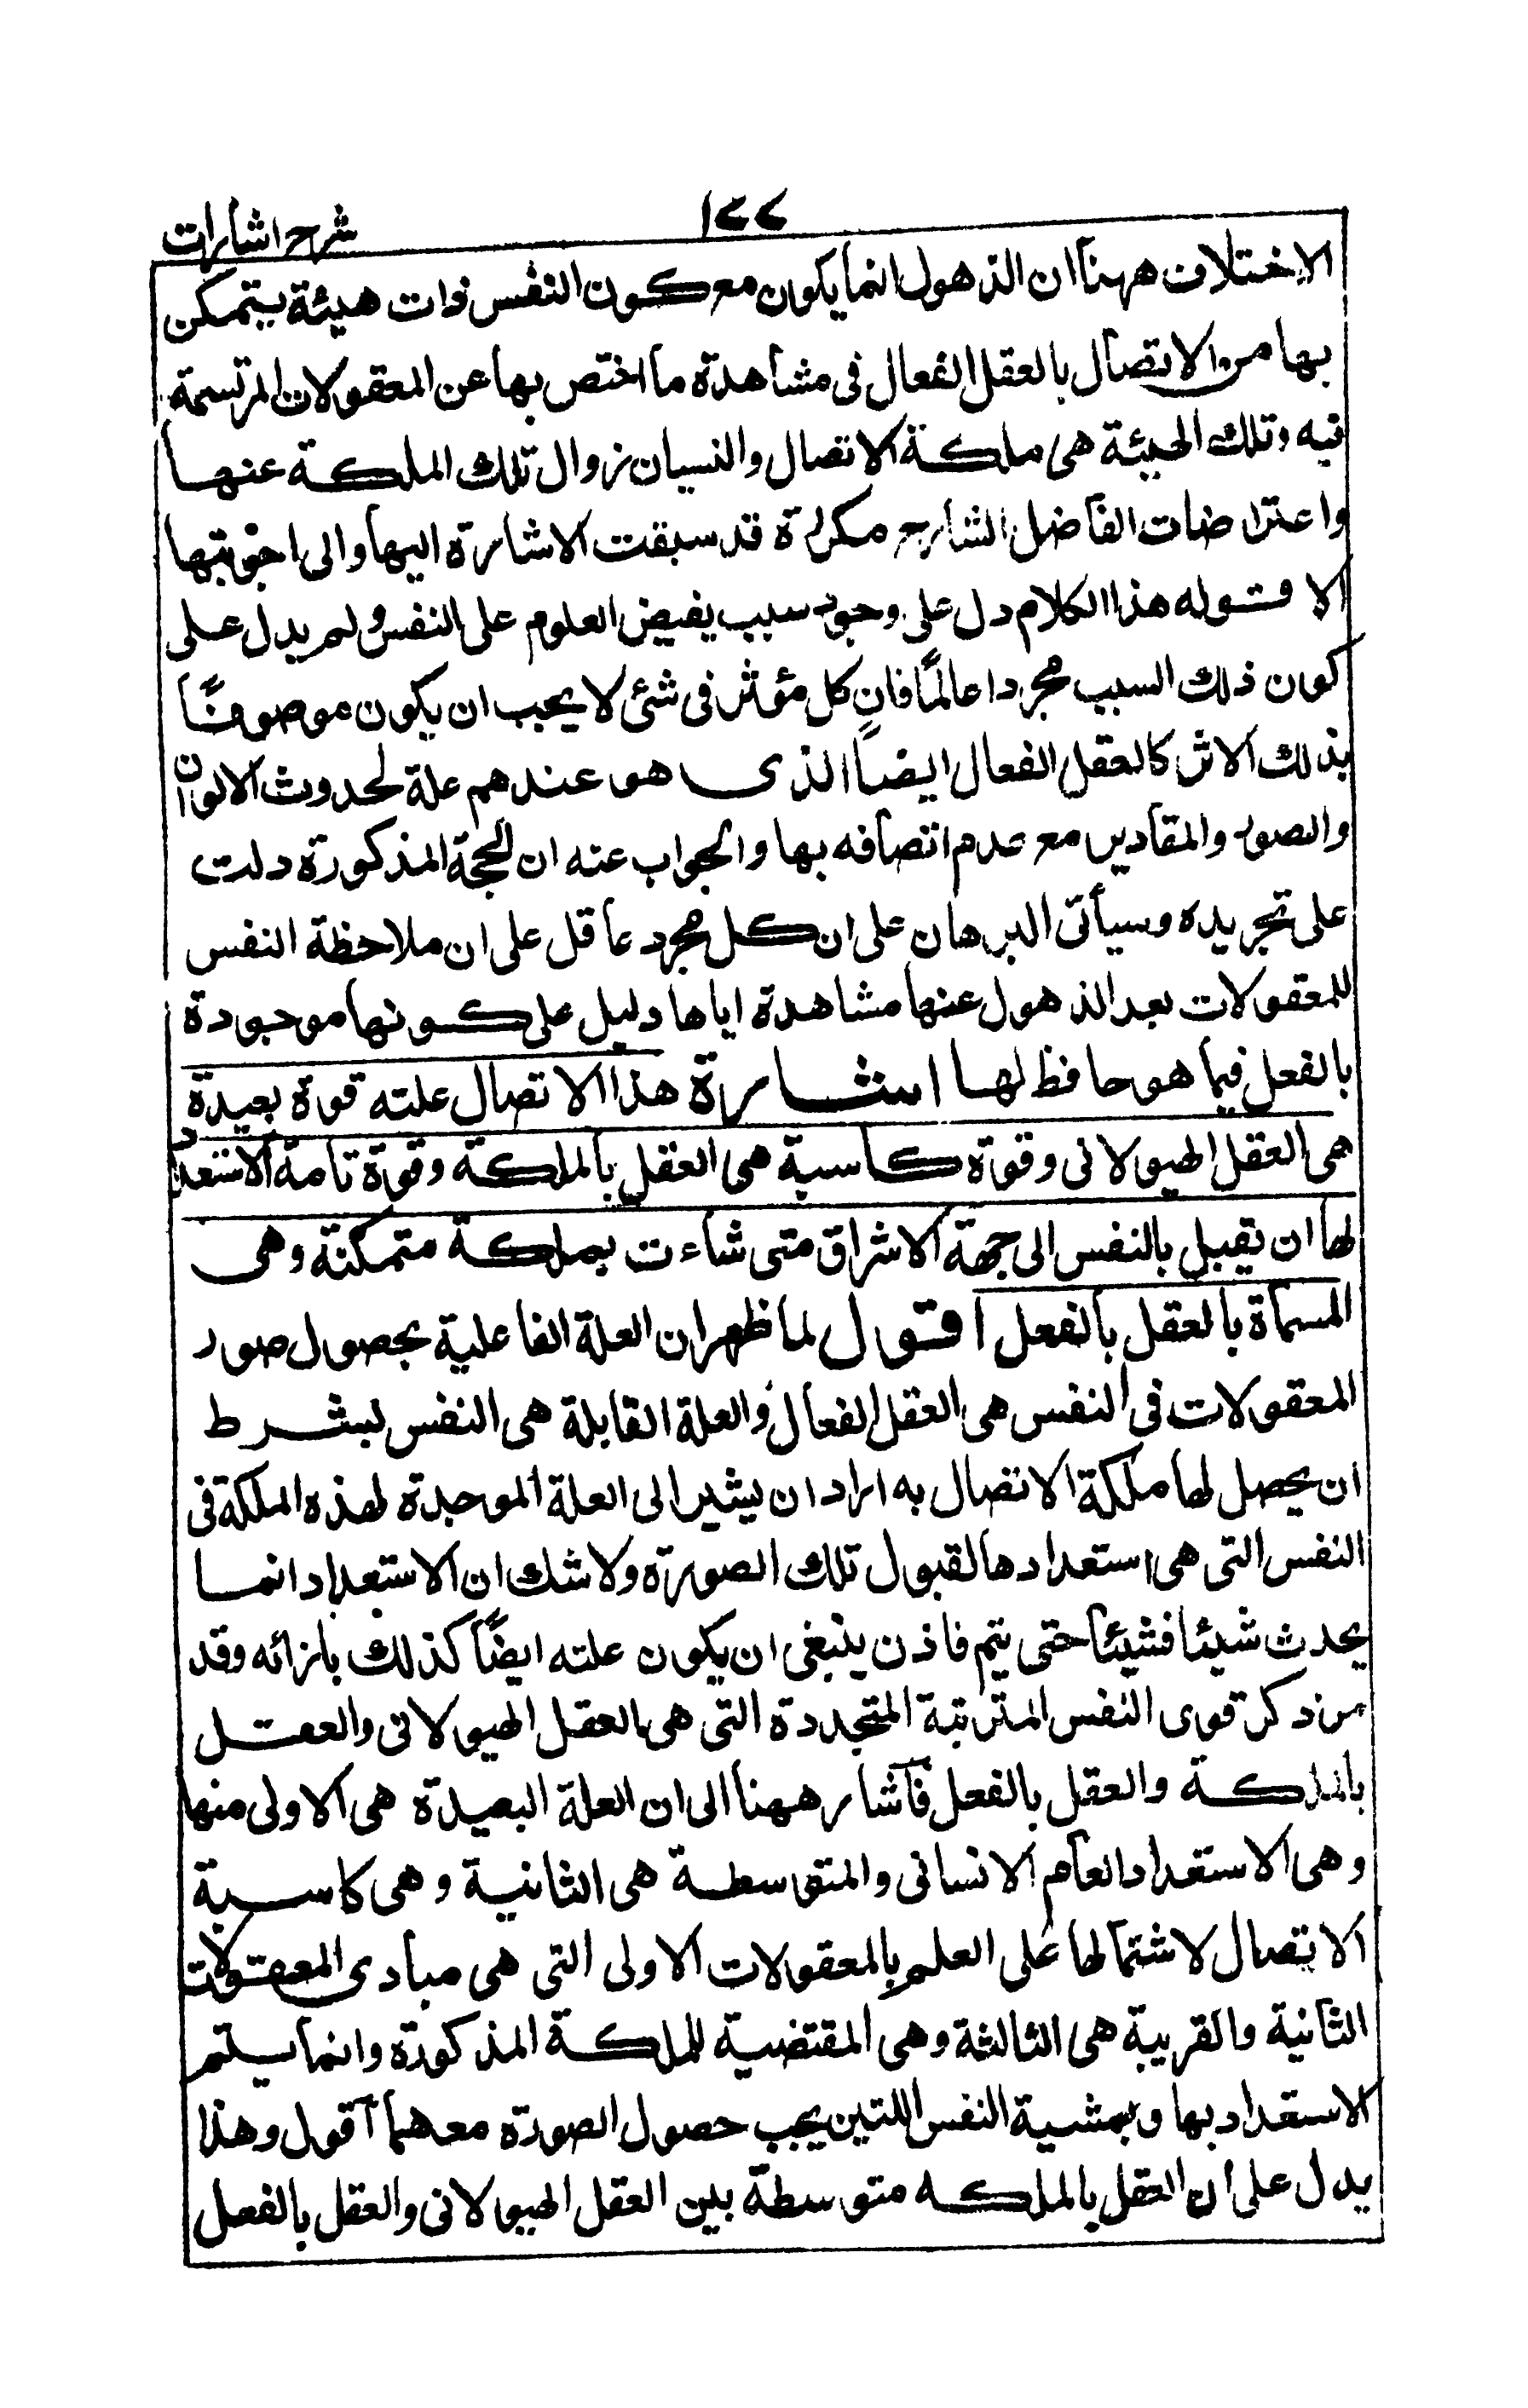 شرح اشارات
١٢٢
الاختلاف ههنا ان الذهول انما يكون مع كون النفس ذات هيئة يتمكن
بها من الاتصال بالعقل الفعال فى مشاهدة ما اختص بها عن المعقولات المرتسمة
فيه وتلك الهيئة هى ملكة الاتصال والنسيان زوال تلك الملكة عنها
واعتراضات الفاضل الشارح مكررة قد سبقت الاشارة اليها والى اجوبتها
الا قوله هذا الكلام دل على وجود سبب يفيض العلوم على النفس ولم يدل على
كون ذلك السبب مجردا عالمًا فان كل مؤثر فى شئ لا يجب ان يكون موصوفًا
بذلك الاثر كالعقل الفعال ايضًا الذى هو عندهم علة لحدوث الالوان
والصور والمقادير مع عدم اتصافه بها والجواب عنه ان الحجة المذكورة دلت
على تجريده وسيأتى البرهان على ان كل مجرد عاقل على ان ملاحظة النفس
للمعقولات بعد الذهول عنها مشاهدة اياها دليل على كونها موجودة
بالفعل فيما هو حافظ لها اشارة هذا الاتصال علته قوة بعيدة
هى العقل الهيولانى وقوة كاسبة هى العقل بالملكة وقوة تامة الاستعداد
لها ان تقبل بالنفس الى جهة الاشراق متى شاءت بملكة متمكنة وهى
المسماة بالعقل بالفعل اقول لما ظهر ان العلة الفاعلية بحصول صور
المعقولات فى النفس هى العقل الفعال والعلة القابلة هى النفس بشرط
ان يحصل لها ملكة الاتصال به اراد ان يشير الى العلة الموجدة لهذه الملكة فى
النفس التى هى استعدادها لقبول تلك الصورة ولا شك ان الاستعداد انما
يحدث شيئا فشيئًا حتى يتم فاذن ينبغى ان يكون علته ايضًا كذلك بازائه وقد
مر ذكر قوى النفس المترتبة المتجددة التى هى العقل الهيولانى والعقل
بالملكة والعقل بالفعل فأشار ههنا الى ان العلة البعيدة هى الاولى منها
وهى الاستعداد العام الانسانى والمتوسطة هى الثانية وهى كاسبة
الاتصال لاشتمالها على العلم بالمعقولات الاولى التى هى مبادى المعقولات
الثانية والقريبة هى الثالثة وهى المقتضية للملكة المذكورة وانما يتم
الاستعداد بها وبمشية النفس اللتين يجب حصول الصورة معهما أقول وهذا
يدل على ان العقل بالملكه متوسطة بين العقل الهيولانى والعقل بالفعل